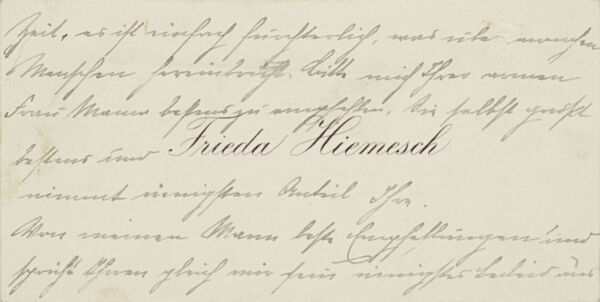 Zeit, es ist einfach fürchterlich, was über manchen
Menschen hereinbricht. Bitte mich Ihrer armen
Frau Mama bestens zu empfehlen. Sie selbst grüßt
bestens und
Frieda Hiemesch
nimmt innigsten Anteil Ihre.
Von meinen Mann beste Empfehlungen und
spricht Ihnen gleich mir sein innigstes beileid aus